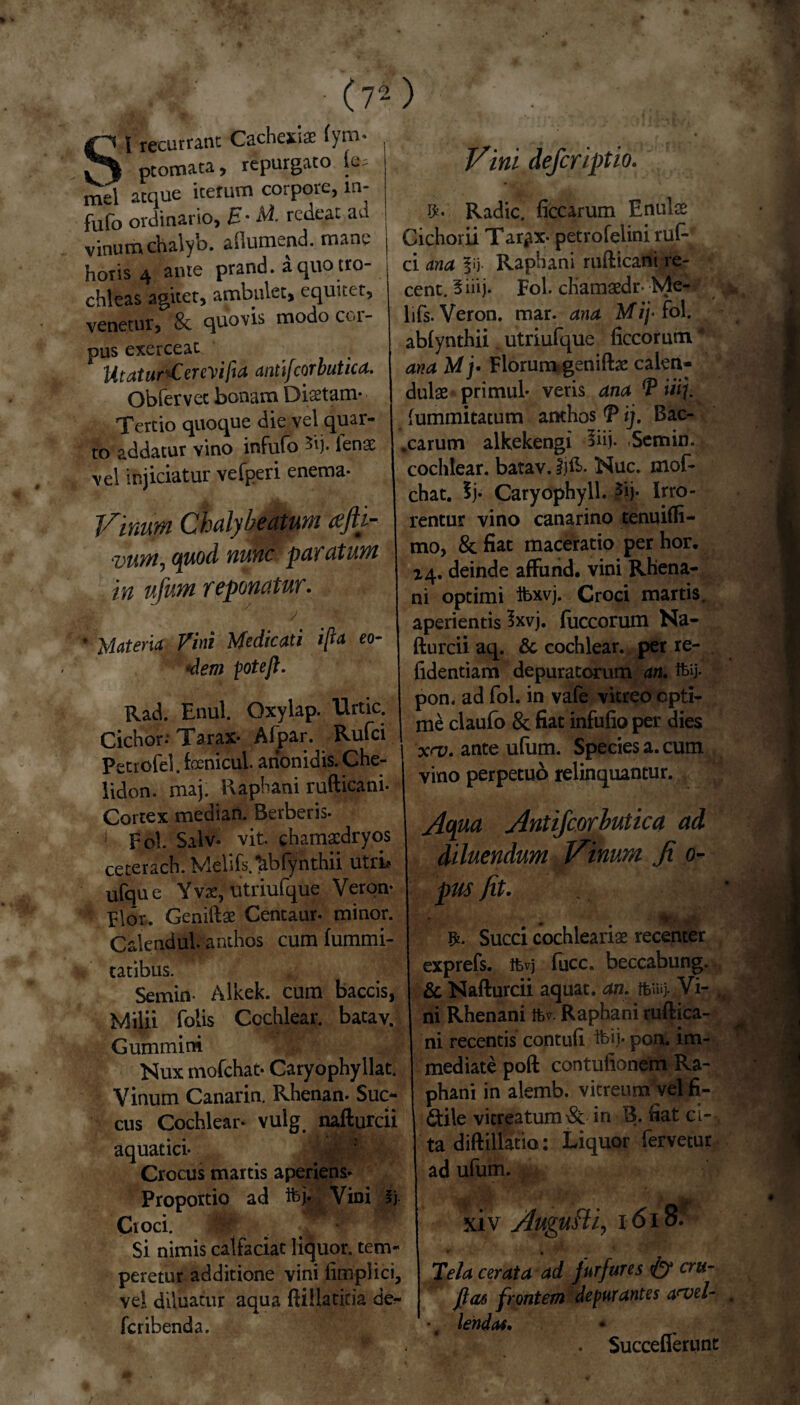 (72)
SI recurrant Cachexiæ ſym-
ptomata, repurgato ſe-
mel atque iterum corpore, in-
fuſo ordinario, E. M. redeat ad
vinum chalyb. aſſumend. mane
horis 4 ante prand. à quo tro-
chleas agitet, ambulet, equitet,
venetur, & quovis modo cor-
pus exerceat
Utatur Cereviſia antiſcorbutica.
Obſervet bonam Diætam.
Tertio quoque die vel quar-
to addatur vino infuſo ʒij. ſenæ
vel injiciatur veſperi enema.
Vinum Chalybeatum æſti-
vum, quod nunc paratum
in uſum reponatur.
Materia Vini Medicati iſta eo-
dem poteſt.
Rad. Enul. Oxylap. Urtic.
Cichor. Tarax. Aſpar. Ruſci
Petroſel. fœnicul. anonidis. Che-
lidon. maj. Raphani ruſticani.
Cortex median. Berberis.
Fol. Salv. vit. chamædryos
ceterach. Meliſs. abſynthii utri-
uſque Yvæ, utriuſque Veron.
Flor. Geniſtæ Centaur. minor.
Calendul. anthos cum ſummi-
tatibus.
Semin. Alkek. cum baccis,
Milii ſolis Cochlear. batav.
Gummini
Nux moſchat. Caryophyllat.
Vinum Canarin. Rhenan. Suc-
cus Cochlear. vulg. naſturcii
aquatici.
Crocus martis aperiens.
Proportio ad ℔j. Vini ℥j.
Croci.
Si nimis calfaciat liquor. tem-
peretur additione vini ſimplici,
vel diluatur aqua ſtillatitia de-
ſcribenda.
Vini deſcriptio.
℞. Radic. ſiccarum Enulæ
Cichorii Tarax. petroſelini ruſ-
ci ana ℥ij. Raphani ruſticani re-
cent. ℥iiij. Fol. chamædr. Me-
liſs. Veron. mar. ana Mij. fol.
abſynthii utriuſque ſiccorum
ana Mj. Florum geniſtæ calen-
dulæ primul. veris ana P iiij.
ſummitatum anthos P ij. Bac-
carum alkekengi ℥iij. Semin.
cochlear. batav. ℥jß. Nuc. moſ-
chat. ℥j. Caryophyll. ʒij. Irro-
rentur vino canarino tenuiſſi-
mo, & fiat maceratio per hor.
24. deinde affund. vini Rhena-
ni optimi ℔xvj. Croci martis
aperientis ℥xvj. ſuccorum Na-
ſturcii aq. & cochlear. per re-
ſidentiam depuratorum an. ℔ij.
pon. ad ſol. in vaſe vitreo opti-
mè clauſo & fiat infuſio per dies
xv. ante uſum. Species a. cum
vino perpetuò relinquantur.
Aqua Antiſcorbutica ad
diluendum Vinum ſi o-
pus ſit.
℞. Succi cochleariæ recenter
expreſs. ℔vj ſucc. beccabung.
& Naſturcii aquat. an. ℔iiij. Vi-
ni Rhenani ℔v. Raphani ruſtica-
ni recentis contuſi ℔ij. pon. im-
mediatè poſt contuſionem Ra-
phani in alemb. vitreum vel fi-
ctile vitreatum & in B. fiat ci-
ta diſtillatio: Liquor ſervetur
ad uſum.
xiv Auguſti, 1618.
Tela cerata ad furfures & cru-
ſtas frontem depurantes avel-
lendas.
Succeſſerunt